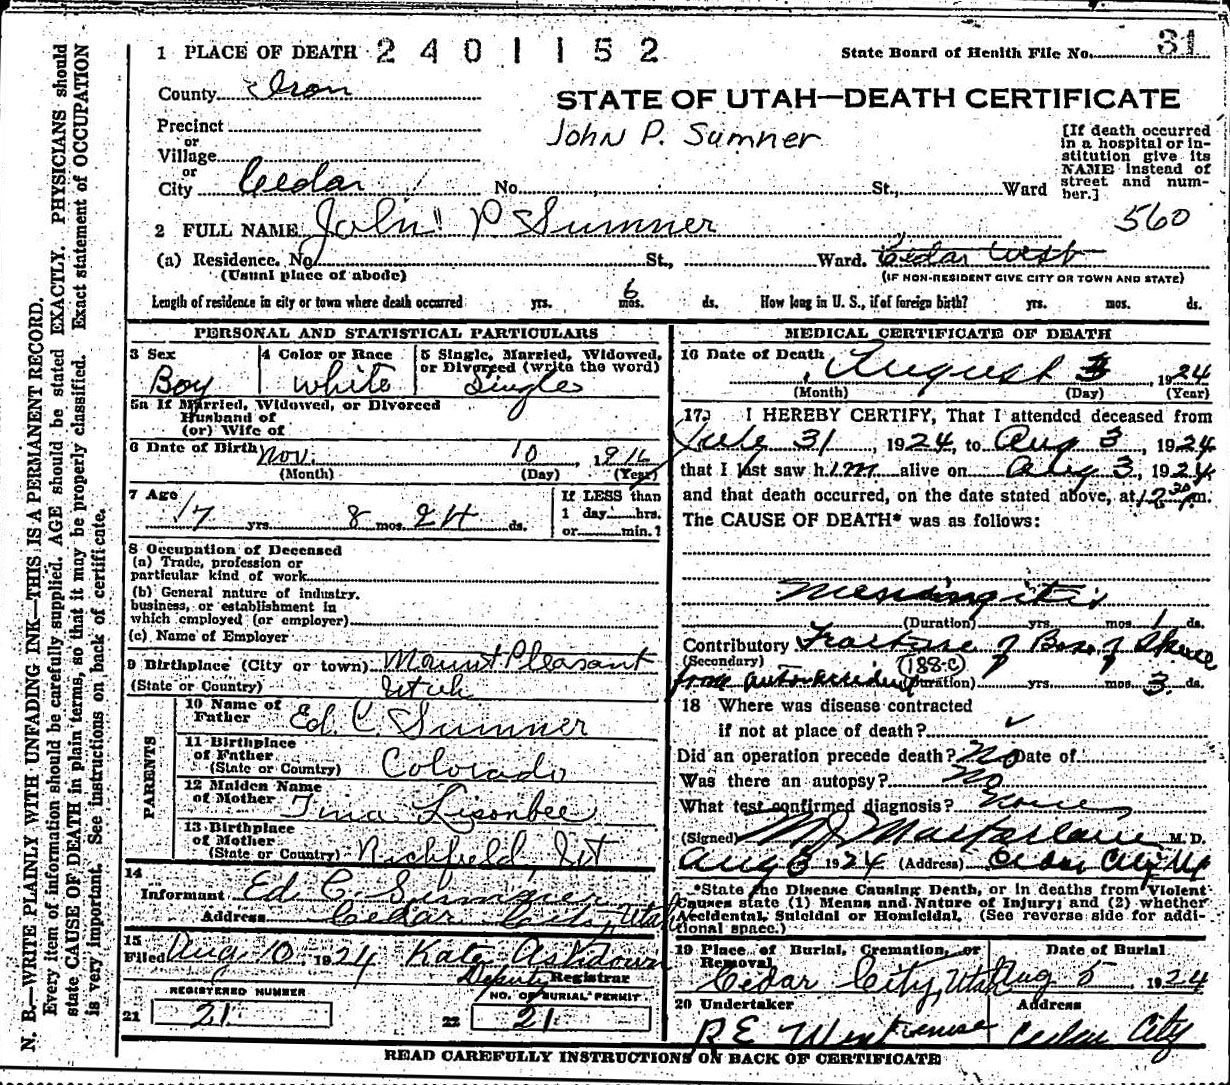 1 PLACE OF DEATH 2401152 State Board of Health File No. 31
County Iron
STATE OF UTAH—DEATH CERTIFICATE
Precinct
or
Village
or
City Cedar No. St., Ward
John P. Sumner
[If death occurred
in a hospital or in-
stitution give its
NAME instead of
street and num-
ber.]
560
2 FULL NAME John P Sumner
(a) Residence. No. St., Ward. Cedar
(Usual place of abode) (IF NON-RESIDENT GIVE CITY OR TOWN AND STATE)
Length of residence in city or town where death occurred yrs. 6 mos. ds. How long in U. S., if of foreign birth? yrs. mos. ds.
PERSONAL AND STATISTICAL PARTICULARS
3 Sex
Boy
4 Color or Race
White
5 Single, Married, Widowed,
or Divorced (write the word)
Single
5a If Married, Widowed, or Divorced
Husband of
(or) Wife of
6 Date of Birth Nov. 10, 19
(Month) (Day) (Year)
7 Age
17 yrs. 8 mos. 24 ds.
If LESS than
1 day hrs.
or min.?
8 Occupation of Deceased
(a) Trade, profession or
particular kind of work
(b) General nature of industry,
business, or establishment in
which employed (or employer)
(c) Name of Employer
9 Birthplace (City or town) Mount Pleasant
(State or Country) Utah
PARENTS
10 Name of
Father Ed. C. Sumner
11 Birthplace
of Father
(State or Country) Colorado
12 Maiden Name
of Mother Tina Lisonbee
13 Birthplace
of Mother
(State or Country) Richfield, Ut
14
Informant Ed C. Sumner
Address Cedar City, Utah
15
Filed Aug. 10 1924 Kate Ashdown
Deputy Registrar
REGISTERED NUMBER
21 21
NO. OF BURIAL PERMIT
22 21
MEDICAL CERTIFICATE OF DEATH
16 Date of Death
August 3, 1924
(Month) (Day) (Year)
17. I HEREBY CERTIFY, That I attended deceased from
July 31, 1924, to Aug 3, 1924
that I last saw him alive on Aug 3, 1924
and that death occurred, on the date stated above, at 12 30 P.m.
The CAUSE OF DEATH* was as follows:
Meningitis
(Duration) yrs. mos. 1 ds.
Contributory Fracture of Base of Skull
(Secondary) (188-c)
from auto accident (Duration) yrs. mos. 3 ds.
18 Where was disease contracted
if not at place of death?
Did an operation precede death? No Date of
Was there an autopsy? No
What test confirmed diagnosis? None
(Signed) M J Macfarlane M. D.
Aug 1924 (Address) Cedar City Ut
*State the Disease Causing Death, or in deaths from Violent
Causes state (1) Means and Nature of Injury; and (2) whether
Accidental, Suicidal or Homicidal. (See reverse side for addi-
tional space.)
19 Place of Burial, Cremation, or
Removal
Date of Burial
Cedar City, Utah Aug 5, 1924
20 Undertaker Address
R E Cedar City
READ CAREFULLY INSTRUCTIONS ON BACK OF CERTIFICATE
N. B.—WRITE PLAINLY WITH UNFADING INK—THIS IS A PERMANENT RECORD.
Every item of information should be carefully supplied. AGE should be stated EXACTLY. PHYSICIANS should
state CAUSE OF DEATH in plain terms, so that it may be properly classified. Exact statement of OCCUPATION
is very important. See instructions on back of certificate.